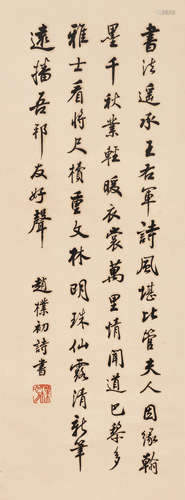 書法遥承王右軍詩風堪比管夫人因緣翰
墨千秋業輕暖衣裳萬里情聞道巴黎多
雅士看將尺櫝重文林明珠仙露清新筆
遠播吾邦友好聲
趙樸初詩書